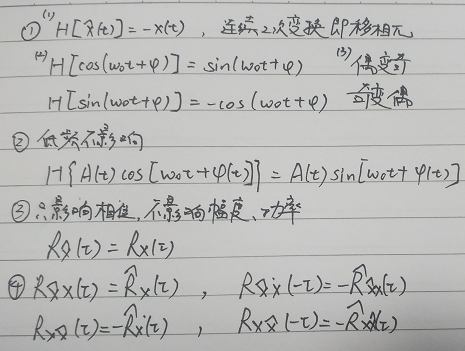 ① (1) H[x̂(t)] = -x(t) , 连续2次变换即移相π
(2) H[cos(w₀t+φ)] = sin(w₀t+φ) (3) 偶变奇
H[sin(w₀t+φ)] = -cos(w₀t+φ) 奇变偶
② 低频不影响
H{A(t)cos[w₀t+φ(t)]} = A(t)sin[w₀t+φ(t)]
③ 只影响相位,不影响幅度、功率
Rx̂(τ) = Rx(τ)
④ Rx̂x(τ) = R̂x(τ) ,
Rxx̂(τ) = -R̂x(τ) ,